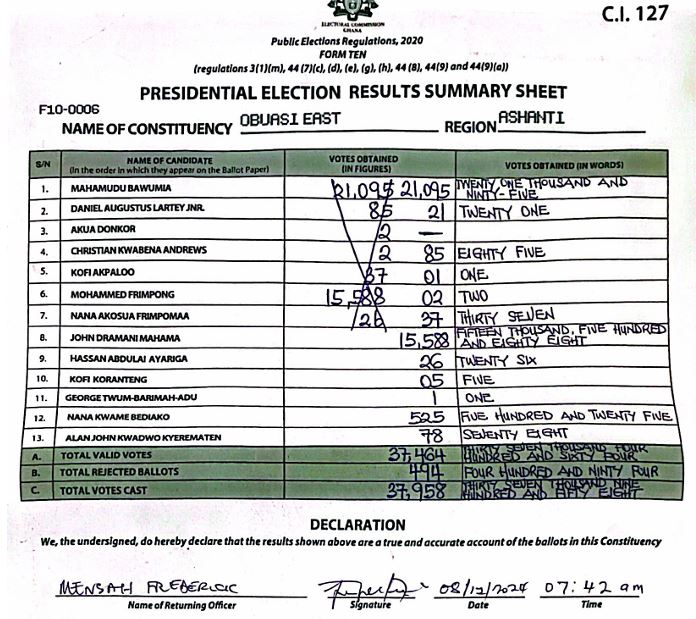 C.I. 127
ELECTORAL COMMISSION
GHANA
Public Elections Regulations, 2020
FORM TEN
(regulations 3(1)(m), 44 (7)(c), (d), (e), (g), (h), 44 (8), 44(9) and 44(9)(a))
PRESIDENTIAL ELECTION RESULTS SUMMARY SHEET
F10-0006
NAME OF CONSTITUENCY OBUASI EAST REGION ASHANTI
S/N NAME OF CANDIDATE (In the order in which they appear on the Ballot Paper) VOTES OBTAINED (IN FIGURES) VOTES OBTAINED (IN WORDS)
1. MAHAMUDU BAWUMIA 21,095 21,095 TWENTY ONE THOUSAND AND NINTY-FIVE
2. DANIEL AUGUSTUS LARTEY JNR. 85 21 TWENTY ONE
3. AKUA DONKOR 2 —
4. CHRISTIAN KWABENA ANDREWS 2 85 EIGHTY FIVE
5. KOFI AKPALOO 37 01 ONE
6. MOHAMMED FRIMPONG 15,588 02 TWO
7. NANA AKOSUA FRIMPOMAA 26 37 THIRTY SEVEN
8. JOHN DRAMANI MAHAMA 15,588 FIFTEEN THOUSAND, FIVE HUNDRED AND EIGHTY EIGHT
9. HASSAN ABDULAI AYARIGA 26 TWENTY SIX
10. KOFI KORANTENG 05 FIVE
11. GEORGE TWUM-BARIMAH-ADU 1 ONE
12. NANA KWAME BEDIAKO 525 FIVE HUNDRED AND TWENTY FIVE
13. ALAN JOHN KWADWO KYEREMATEN 78 SEVENTY EIGHT
A. TOTAL VALID VOTES 37,464 THIRTY SEVEN THOUSAND FOUR HUNDRED AND SIXTY FOUR
B. TOTAL REJECTED BALLOTS 494 FOUR HUNDRED AND NINTY FOUR
C. TOTAL VOTES CAST 37,958 THIRTY SEVEN THOUSAND NINE HUNDRED AND FIFTY EIGHT
DECLARATION
We, the undersigned, do hereby declare that the results shown above are a true and accurate account of the ballots in this Constituency
MENSAH FREDERICK 08/12/2024 07:42 am
Name of Returning Officer Signature Date Time